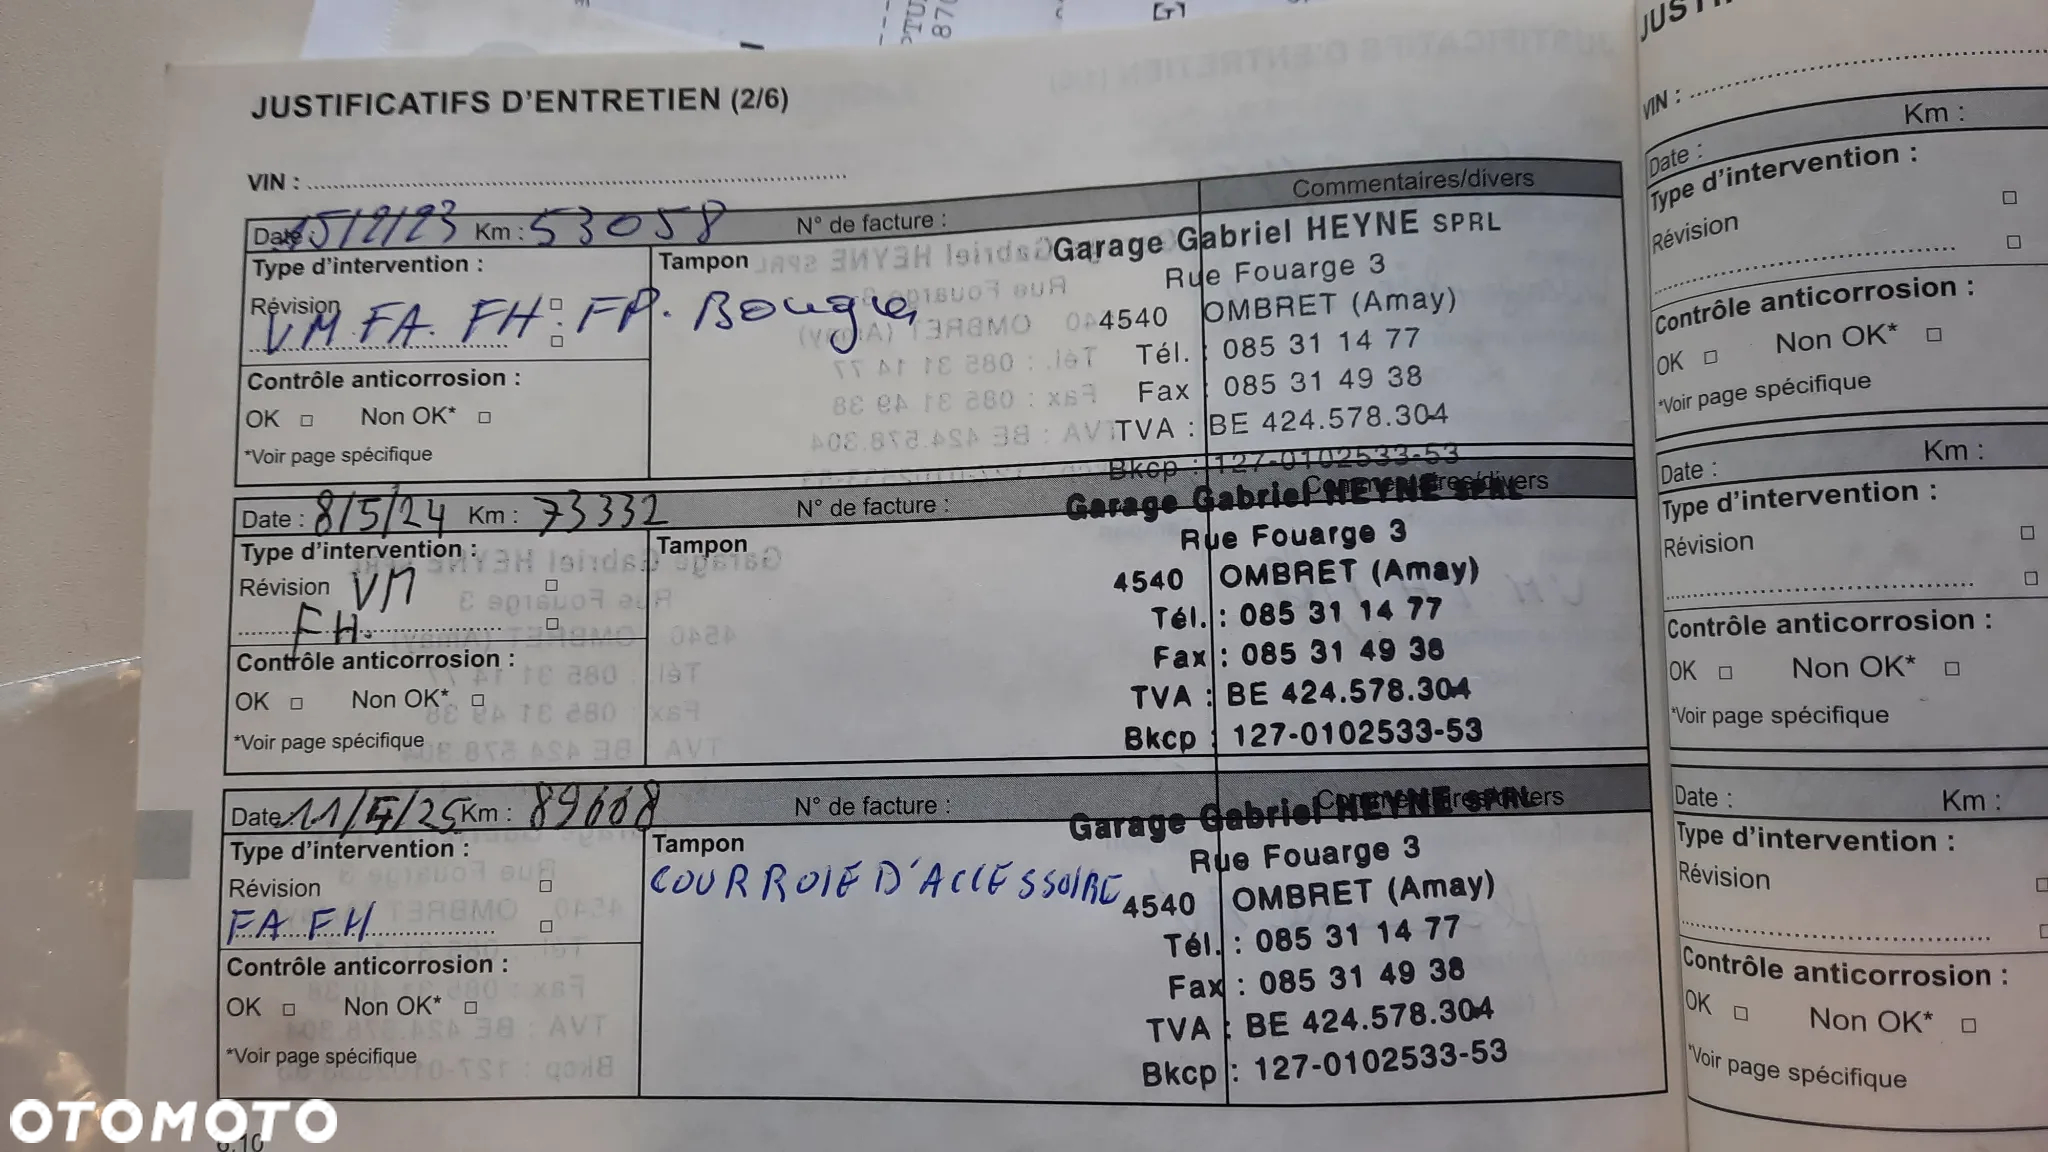 JUSTIFICATIFS D'ENTRETIEN (2/6)
VIN :
Date : 15/2/23 Km : 53058 N° de facture : Commentaires/divers
Type d'intervention :
Tampon
Révision
VM FA. FH. FP. Bougies
Contrôle anticorrosion :
OK Non OK*
*Voir page spécifique
Garage Gabriel HEYNE SPRL
Rue Fouarge 3
4540 OMBRET (Amay)
Tél. : 085 31 14 77
Fax : 085 31 49 38
TVA : BE 424.578.304
Bkcp : 127-0102533-53
Date : 8/5/24 Km : 73332 N° de facture : Commentaires/divers
Type d'intervention :
Tampon
Révision VM
FH.
Contrôle anticorrosion :
OK Non OK*
*Voir page spécifique
Garage Gabriel HEYNE SPRL
Rue Fouarge 3
4540 OMBRET (Amay)
Tél. : 085 31 14 77
Fax : 085 31 49 38
TVA : BE 424.578.304
Bkcp : 127-0102533-53
Date : Km : N° de facture : Commentaires/divers
Type d'intervention :
Tampon
Révision
FA FH
COURROIE D'ACCESSOIRE
Contrôle anticorrosion :
OK Non OK*
*Voir page spécifique
Garage Gabriel HEYNE SPRL
Rue Fouarge 3
4540 OMBRET (Amay)
Tél. : 085 31 14 77
Fax : 085 31 49 38
TVA : BE 424.578.304
Bkcp : 127-0102533-53
6.10
VIN :
Date : Km :
Type d'intervention :
Révision
Contrôle anticorrosion :
OK Non OK*
*Voir page spécifique
Date : Km :
Type d'intervention :
Révision
Contrôle anticorrosion :
OK Non OK*
*Voir page spécifique
Date : Km :
Type d'intervention :
Révision
Contrôle anticorrosion :
OK Non OK*
*Voir page spécifique
OTOMOTO